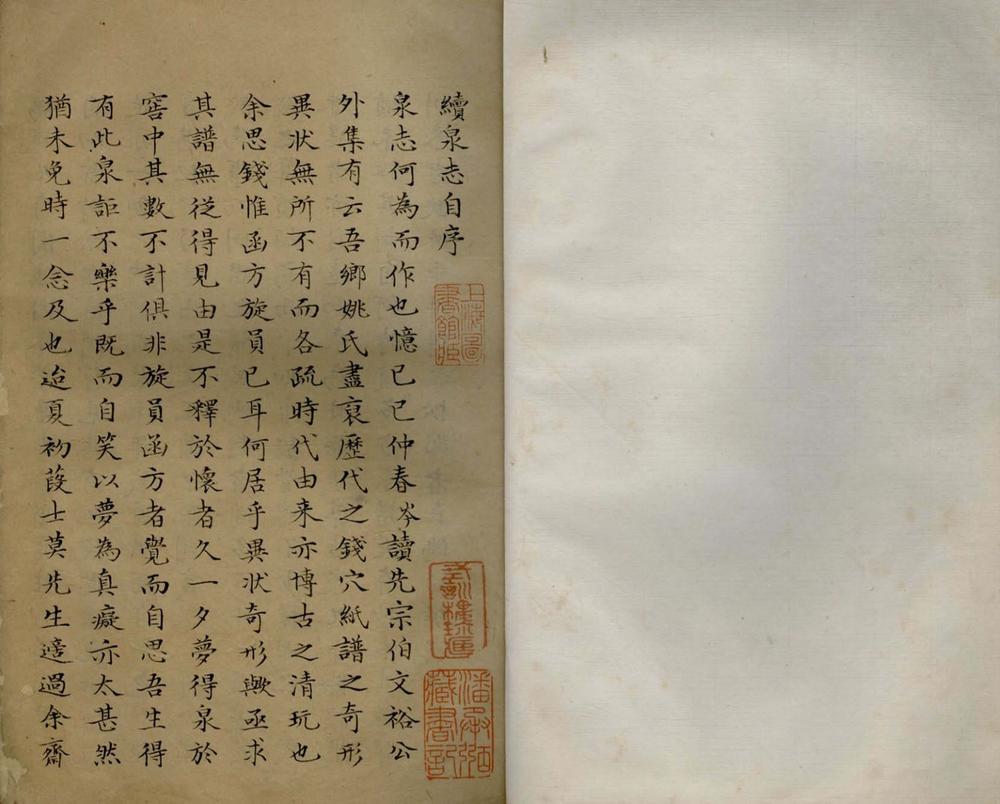 續泉志自序
泉志何為而作也憶己巳仲春岑讀先宗伯文裕公
外集有云吾鄉姚氏盡裒歷代之錢穴紙譜之奇形
異状無所不有而各疏時代由来亦博古之清玩也
余思錢惟函方旋員已耳何居乎異状奇形歟亟求
其譜無從得見由是不釋於懷者久一夕夢得泉於
窖中其數不計俱非旋員函方者覺而自思吾生得
有此泉詎不樂乎既而自笑以夢為真癡亦太甚然
猶未免時一念及也迨夏初葭士莫先生適過余齋
上海圖書館藏
潘承弼藏書記